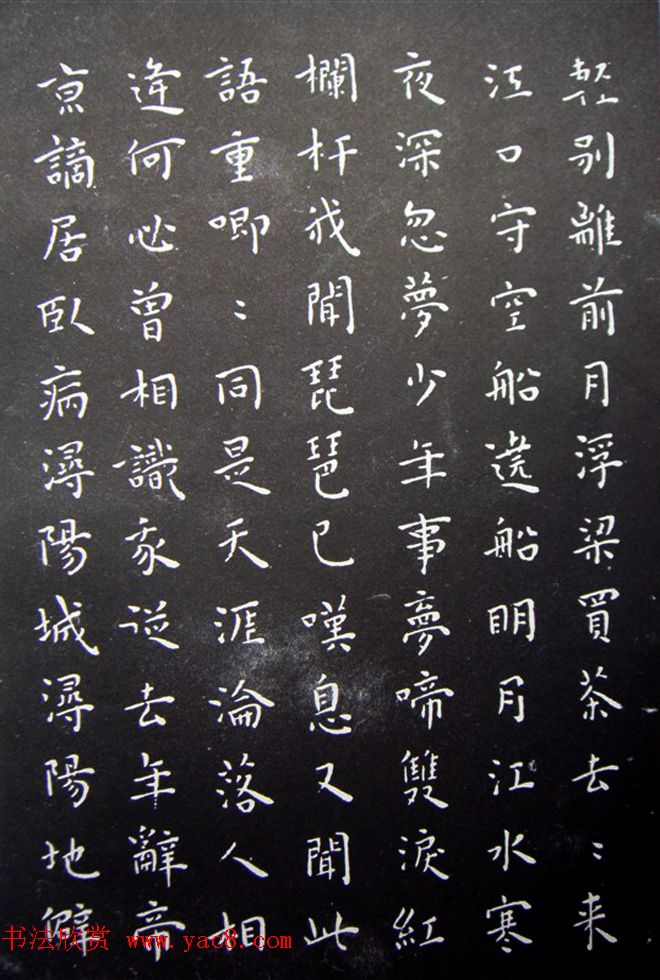 輕別離前月浮梁買茶去〻来
江口守空船遶船眀月江水寒
夜深忽夢少年事夢啼雙淚紅
欄杆我聞琵琶已嘆息又聞此
語重唧〻同是天涯淪落人相
逢何必曾相識我從去年辭帝
京謫居臥病潯陽城潯陽地僻
书法欣赏 www.yac8.com